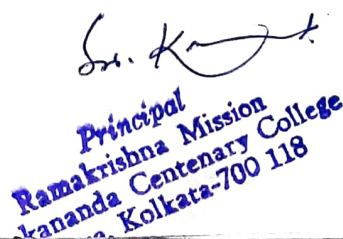 Principal
Ramakrishna Mission
kananda Centenary College
a, Kolkata-700 118